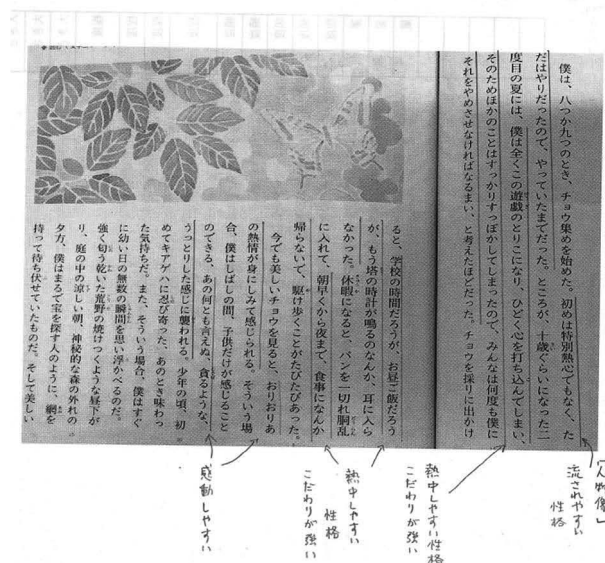 僕は、八つか九つのとき、チョウ集めを始めた。初めは特別熱心でもなく、た
だはやりだったので、やっていたまでだった。ところが、十歳ぐらいになった二
度目の夏には、僕は全くこの遊戯のとりこになり、ひどく心を打ち込んでしまい、
そのためほかのことはすっかりすっぽかしてしまったので、みんなは何度も僕に
それをやめさせなければなるまい、と考えたほどだった。チョウを採りに出かけ
ると、学校の時間だろうが、お昼ご飯だろう
が、もう塔の時計が鳴るのなんか、耳に入ら
なかった。休暇になると、パンを一切れ胴乱
に入れて、朝早くから夜まで、食事になんか
帰らないで、駆け歩くことがたびたびあった。
今でも美しいチョウを見ると、おりおりあ
の熱情が身にしみて感じられる。そういう場
合、僕はしばしの間、子供だけが感じること
のできる、あの何とも言えぬ、貪るような、
うっとりした感じに襲われる。少年の頃、初
めてキアゲハに忍び寄った、あのとき味わっ
た気持ちだ。また、そういう場合、僕はすぐ
に幼い日の無数の瞬間を思い浮かべるのだ。
強く匂う乾いた荒野の焼けつくような昼下が
り、庭の中の涼しい朝、神秘的な森の外れの
夕方、僕はまるで宝を探す人のように、網を
持って待ち伏せていたものだ。そして美しい
「人物像」
流されやすい
性格
熱中しやすい性格
こだわりが強い
熱中しやすい
性格
こだわりが強い
感動しやすい